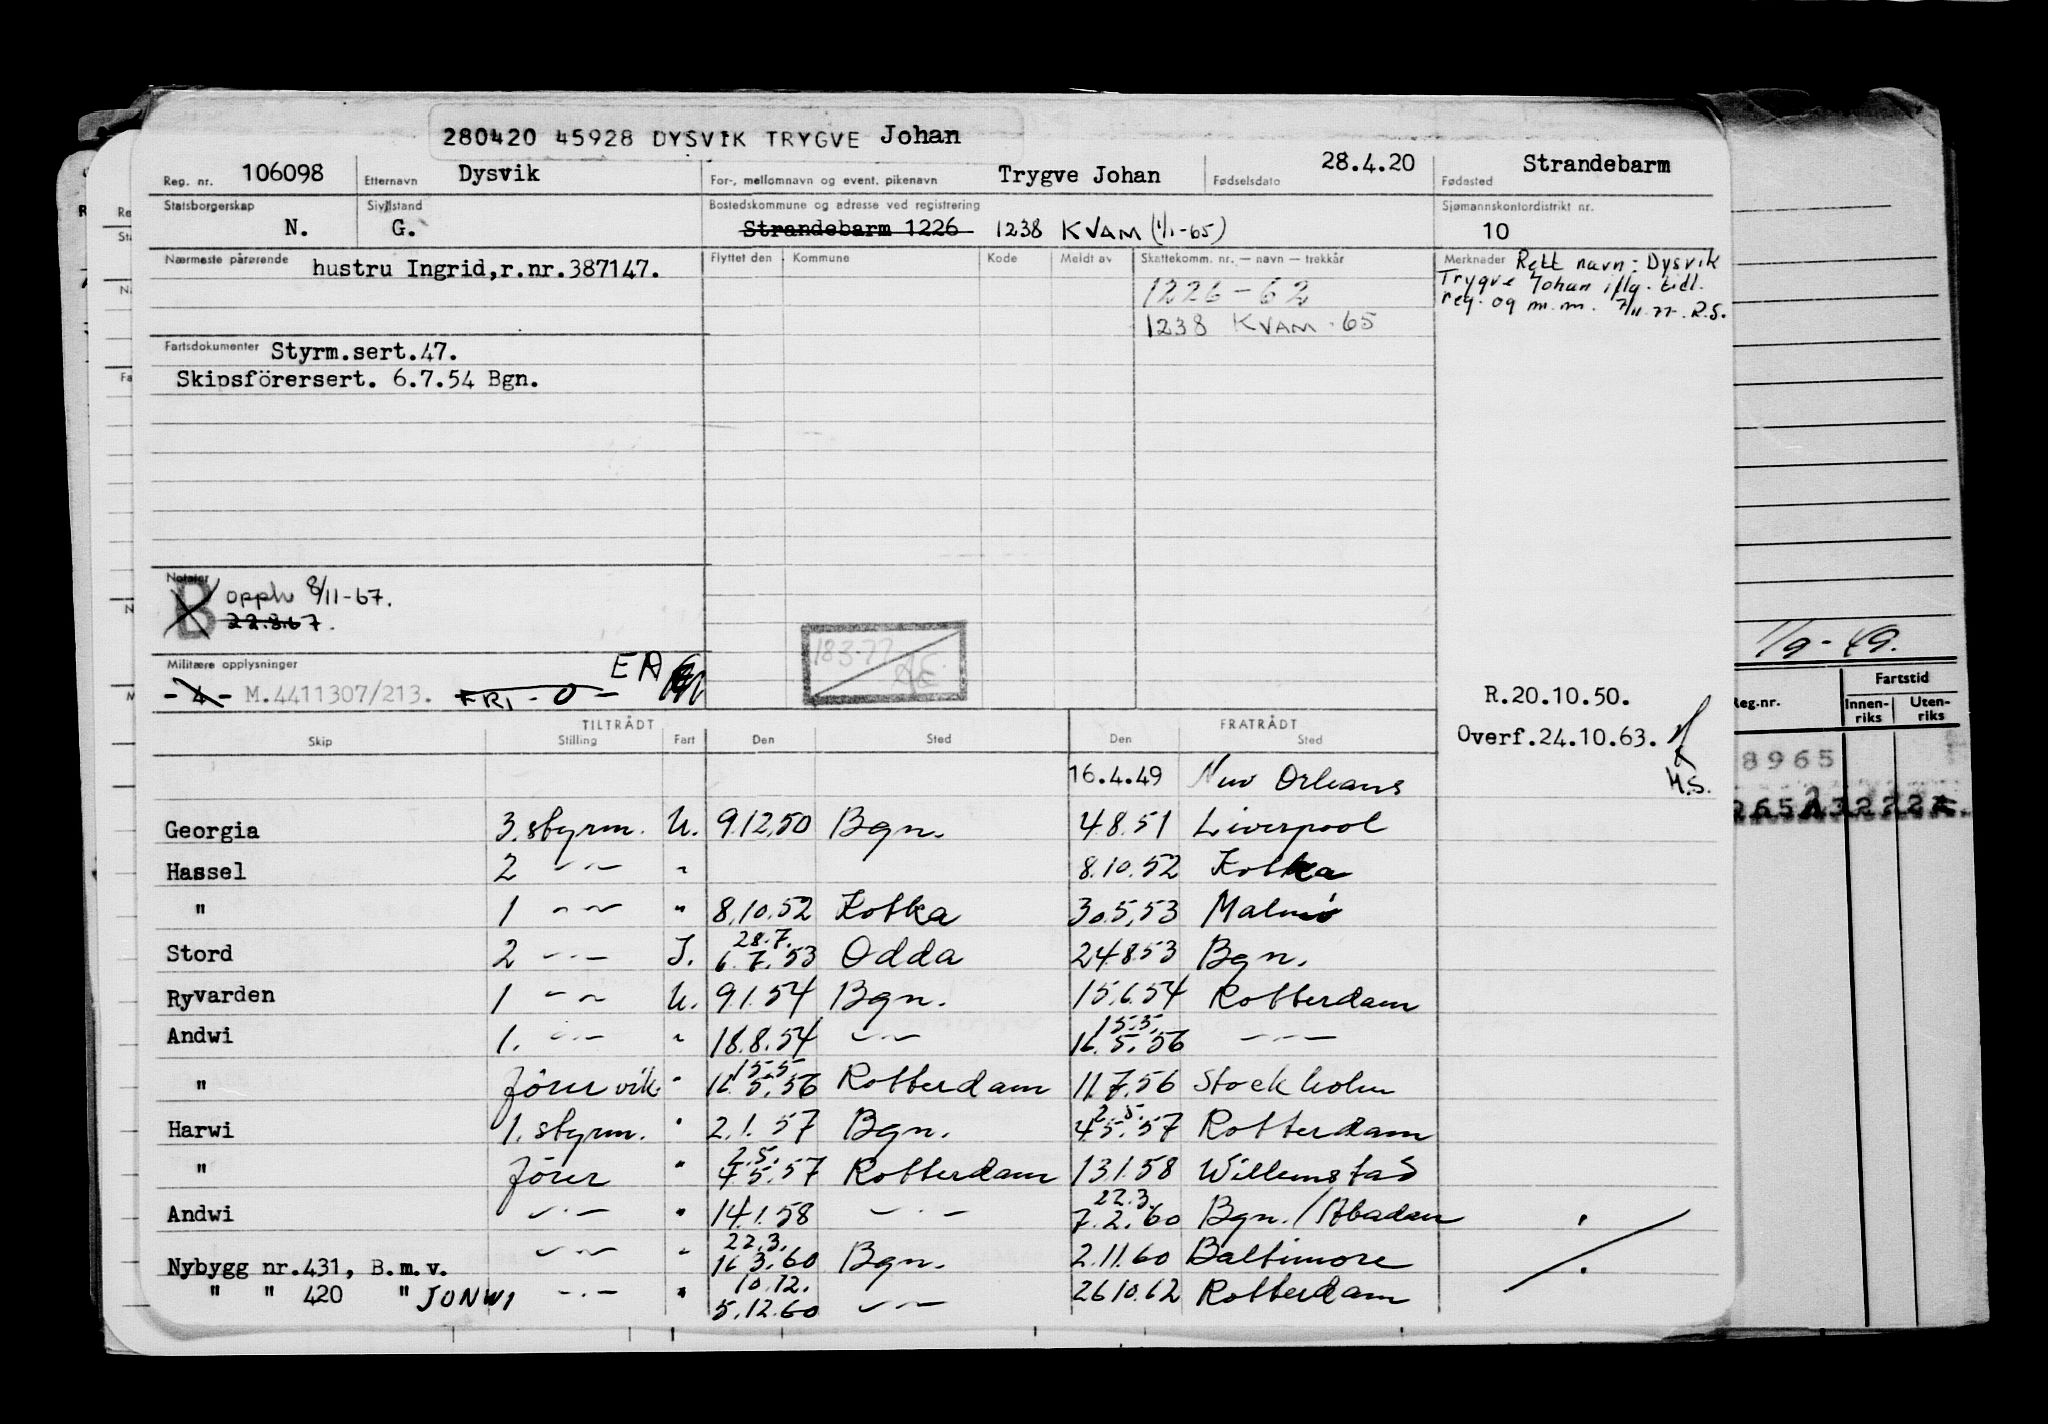 280420 45928 DYSVIK TRYGVE Johan
Reg. nr. 106098 Etternavn Dysvik For-, mellomnavn og event. pikenavn Trygve Johan Fødselsdato 28.4.20 Fødested Strandebarm
Statsborgerskap Sivilstand Bostedskommune og adresse ved registrering Sjømannskontordistrikt nr.
N. G. Strandebarm 1226 1238 KVAM (1/1-65) 10
Nærmeste pårørende hustru Ingrid,r.nr.387147. Flyttet den Kommune Kode Meldt av Skattekomm. nr. — navn — trekkår Merknader Rett navn: Dysvik
1226-62 Trygve Johan iflg. tidl.
1238 KVAM-65 reg. og m.m. 7/11-77 R.S.
Fartsdokumenter Styrm.sert.47.
Skipsförersert. 6.7.54 Bgn.
Notater
B opph 8/11-67.
22.3.67.
Militære opplysninger
- 4 - M.4411307/213. FRI - O - EA
183-77
R.20.10.50.
Overf.24.10.63.
H.S.
1/9-49.
Reg.nr. Fartstid
Innenriks Utenriks
8965
TILTRÅDT FRATRÅDT
Skip Stilling Fart Den Sted Den Sted
16.4.49 New Orleans
Georgia 3. styrm. U. 9.12.50 Bgn. 4.8.51 Liverpool
Hassel 2 -"- " 8.10.52 Kotka
" 1 -"- " 8.10.52 Kotka 30.5.53 Malmö
28.7.
Stord 2 -"- I. 6.7.53 Odda 24.8.53 Bgn.
Ryvarden 1 -"- U. 9.1.54 Bgn. 15.6.54 Rotterdam
15.5.
Andwi 1. -"- " 18.8.54 -"- 16.5.56 -"-
15.5
" förer vik. " 16.5.56 Rotterdam 11.7.56 Stockholm
2.5.
Harwi 1. styrm. " 2.1.57 Bgn. 4.5.57 Rotterdam
2.5.
" förer " 4.5.57 Rotterdam 13.1.58 Willemstad
22.3.
Andwi -"- " 14.1.58 -"- 7.2.60 Bgn./Abadan
22.3.
Nybygg nr.431, B.m.v. -"- " 16.3.60 Bgn. 2.11.60 Baltimore
10.12.
" " 420 " JONWI -"- " 5.12.60 -"- 26.10.62 Rotterdam